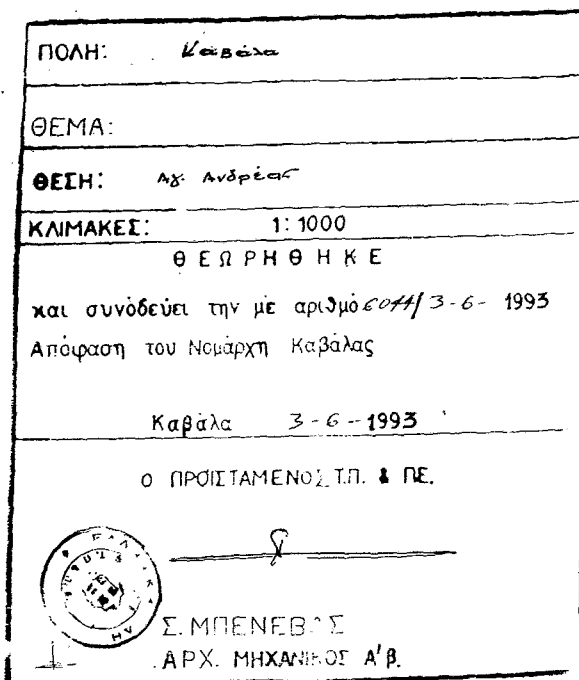 ΠΟΛΗ: Καβάλα
ΘΕΜΑ:
ΘΕΣΗ: Αγ. Ανδρέας
ΚΛΙΜΑΚΕΣ: 1:1000
ΘΕΩΡΗΘΗΚΕ
και συνόδεύει την με αριθμό /3-6- 1993
Απόφαση του Νομάρχη Καβάλας
Καβάλα 3-6-1993
Ο ΠΡΟΙΣΤΑΜΕΝΟΣ Τ.Π. & ΠΕ.
Σ. 
ΑΡΧ. ΜΗΧΑΝΙΚΟΣ Α'β.